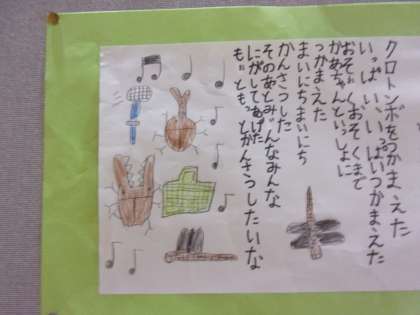 クロトンボをつかまえた
いっぱい、いっぱいつかまえた
おそくまで
かあちゃんといっしょに
つかまえた
まいにちまいにち
かんさつした
そのあとみんなみんな
にがしてあげた
もっともっとかんさつしたいな